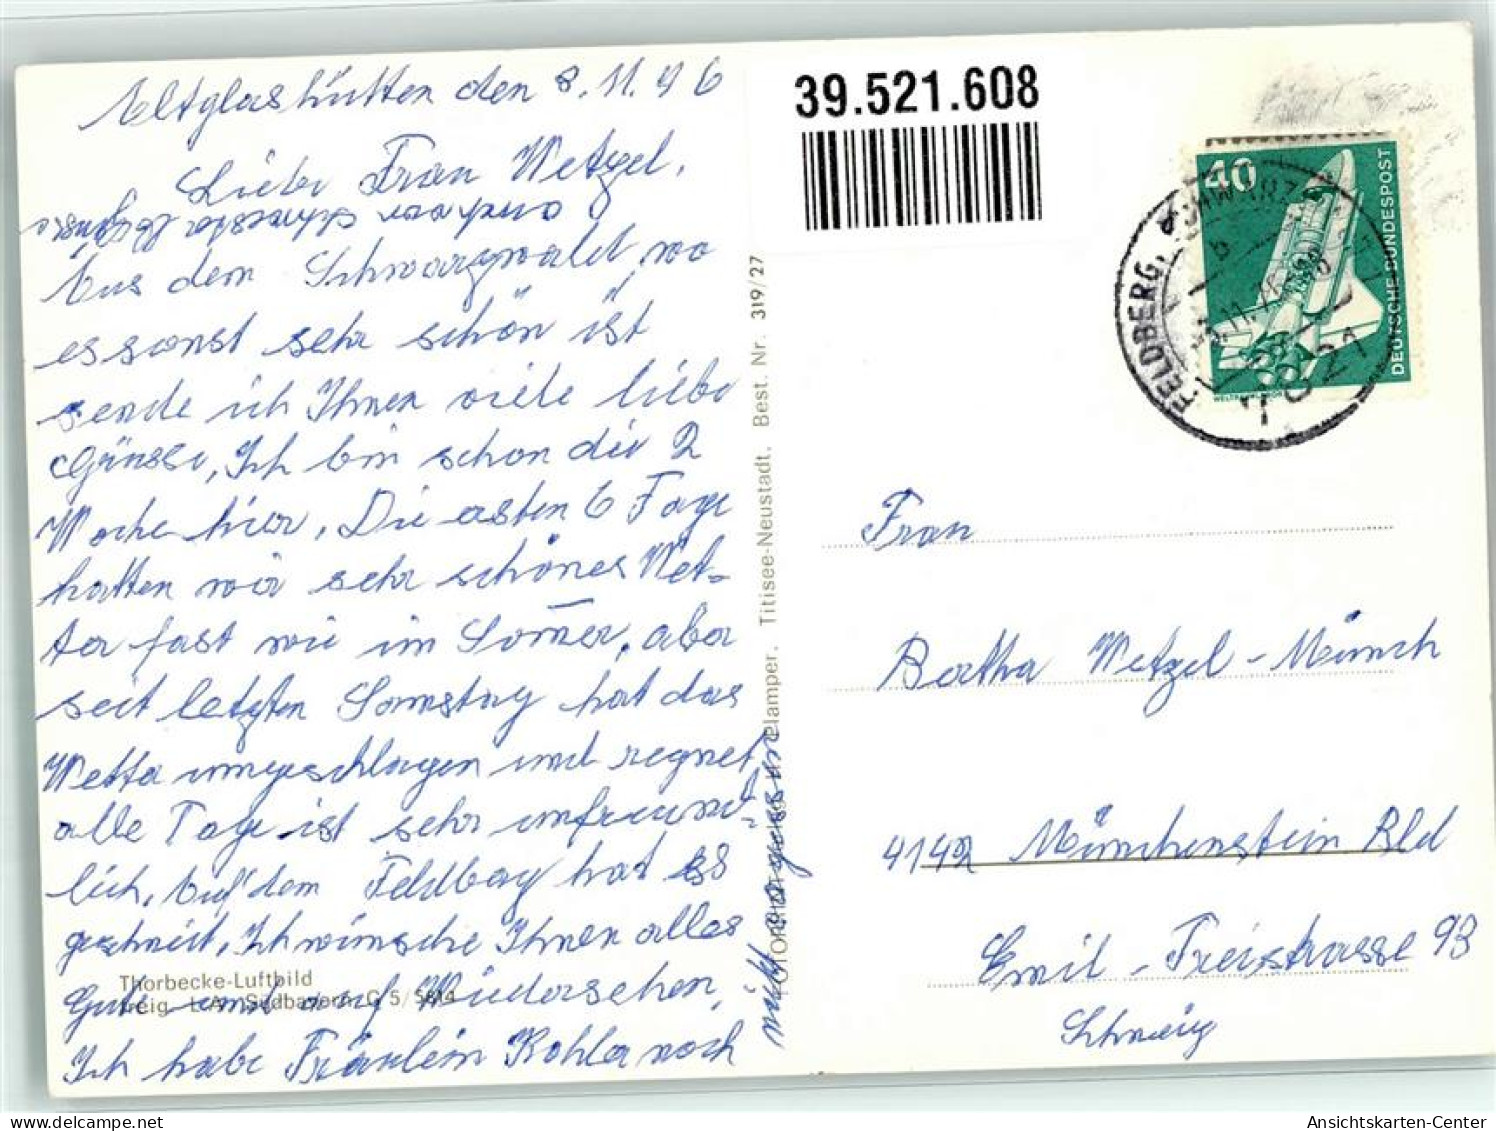 Altglashütten den 8.11.76
Liebe Frau Wetzel,
Aus dem Schwarzwald wo
es sonst sehr schön ist
sende ich Ihnen viele liebe
Grüsse, Ich bin schon die 2
Woche hier, Die ersten 6 Tage
hatten wir sehr schönes Wet-
ter fast wie im Som̅er, aber
seit letzten Samstag hat das
Wetter umgeschlagen und regnet
alle Tage ist sehr unfreund-
lich, Auf dem Feldberg hat es
geschneit, Ich wünsche Ihnen alles
Gute und auf Wiedersehen,
Ich habe Fräulein Kohler noch
nicht vergessen
Thorbecke-Luftbild
freig. L.A. Südbayern G 5/5814
Titisee-Neustadt. Best. Nr. 319/27
39.521.608
40
DEUTSCHE BUNDESPOST
FELDBERG, SCHWARZW
7821
Frau
Bertha Wetzel-Münch
4142 Münchenstein Bld
Emil-Freistrasse 93
Schweiz
Ansichtskarten-Center